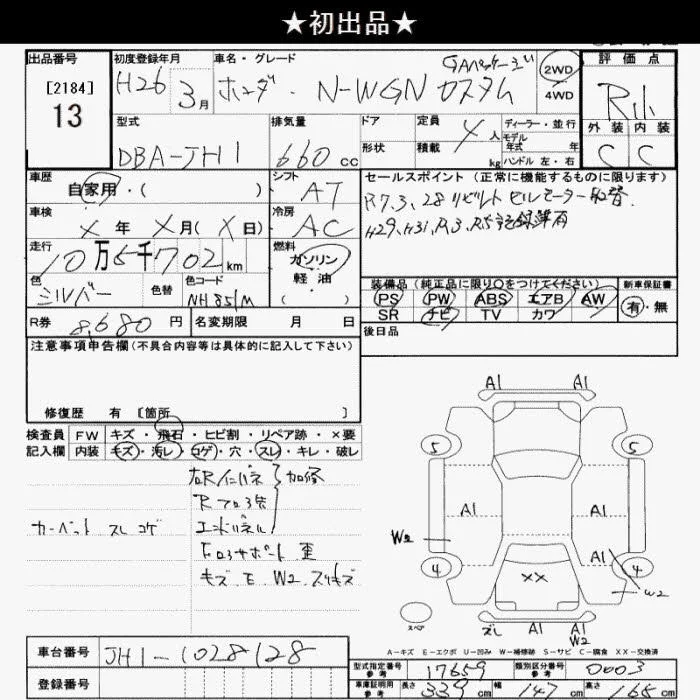 ★初出品★
出品番号 初度登録年月 車名・グレード 評価点
[2184] H26 3月 ホンダ N-WGN カスタム GAパッケージ 2WD
13 4WD R1
型式 排気量 ドア 定員 ディーラー・並行 外装 内装
形状 積載 4人 モデル年式 年
DBA-JH1 660cc kg ハンドル 左・右 C C
車歴 シフト セールスポイント(正常に機能するものに限ります)
自家用・( ) AT R7.3.28 リビルト セルモーター
車検 冷房 H29、H31、R3、R5記録簿有
X年 X月(X日) AC
走行 燃料
10万5千702km ガソリン
色 色替 色コード 軽油 装備品(純正品に限り○をつけてください) 新車保証書
シルバー NH851M ・( ) PS PW ABS エアB AW 有・無
SR ナビ TV カワ
R券 8,680円 名変期限 月 日 後日品
注意事項申告欄(不具合内容等は具体的に記入して下さい)
修復歴 有 [箇所 ]
A1 A1
検査員 FW キズ・飛石・ヒビ割・リペア跡・×要
記入欄 内装 キズ・汚レ・コゲ・穴・スレ・キレ・破レ
5 A1 5
右R/インパネ 加修
Rフロ
A1 A1
カーペット スレ コゲ エンドパネル
W2
フロアサポート 歪 A1
キズ E W2 スリキズ 4 XX 4
W2
スペア
ズレ A1 A1
W2
A-キズ E-エクボ U-凹み W-補修跡 S-サビ C-腐食 XX-交換済
車台番号 JH1-1028128
型式指定番号 参考 17659 類別区分番号 参考 0003
登録番号 車庫証明用 参考 長さ 339cm 幅 147cm 高さ 165cm